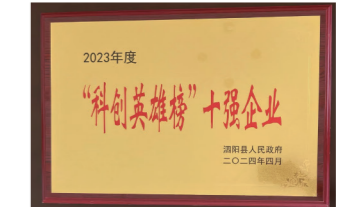 2023年度
“科创英雄榜”十强企业
泗阳县人民政府
二〇二四年四月